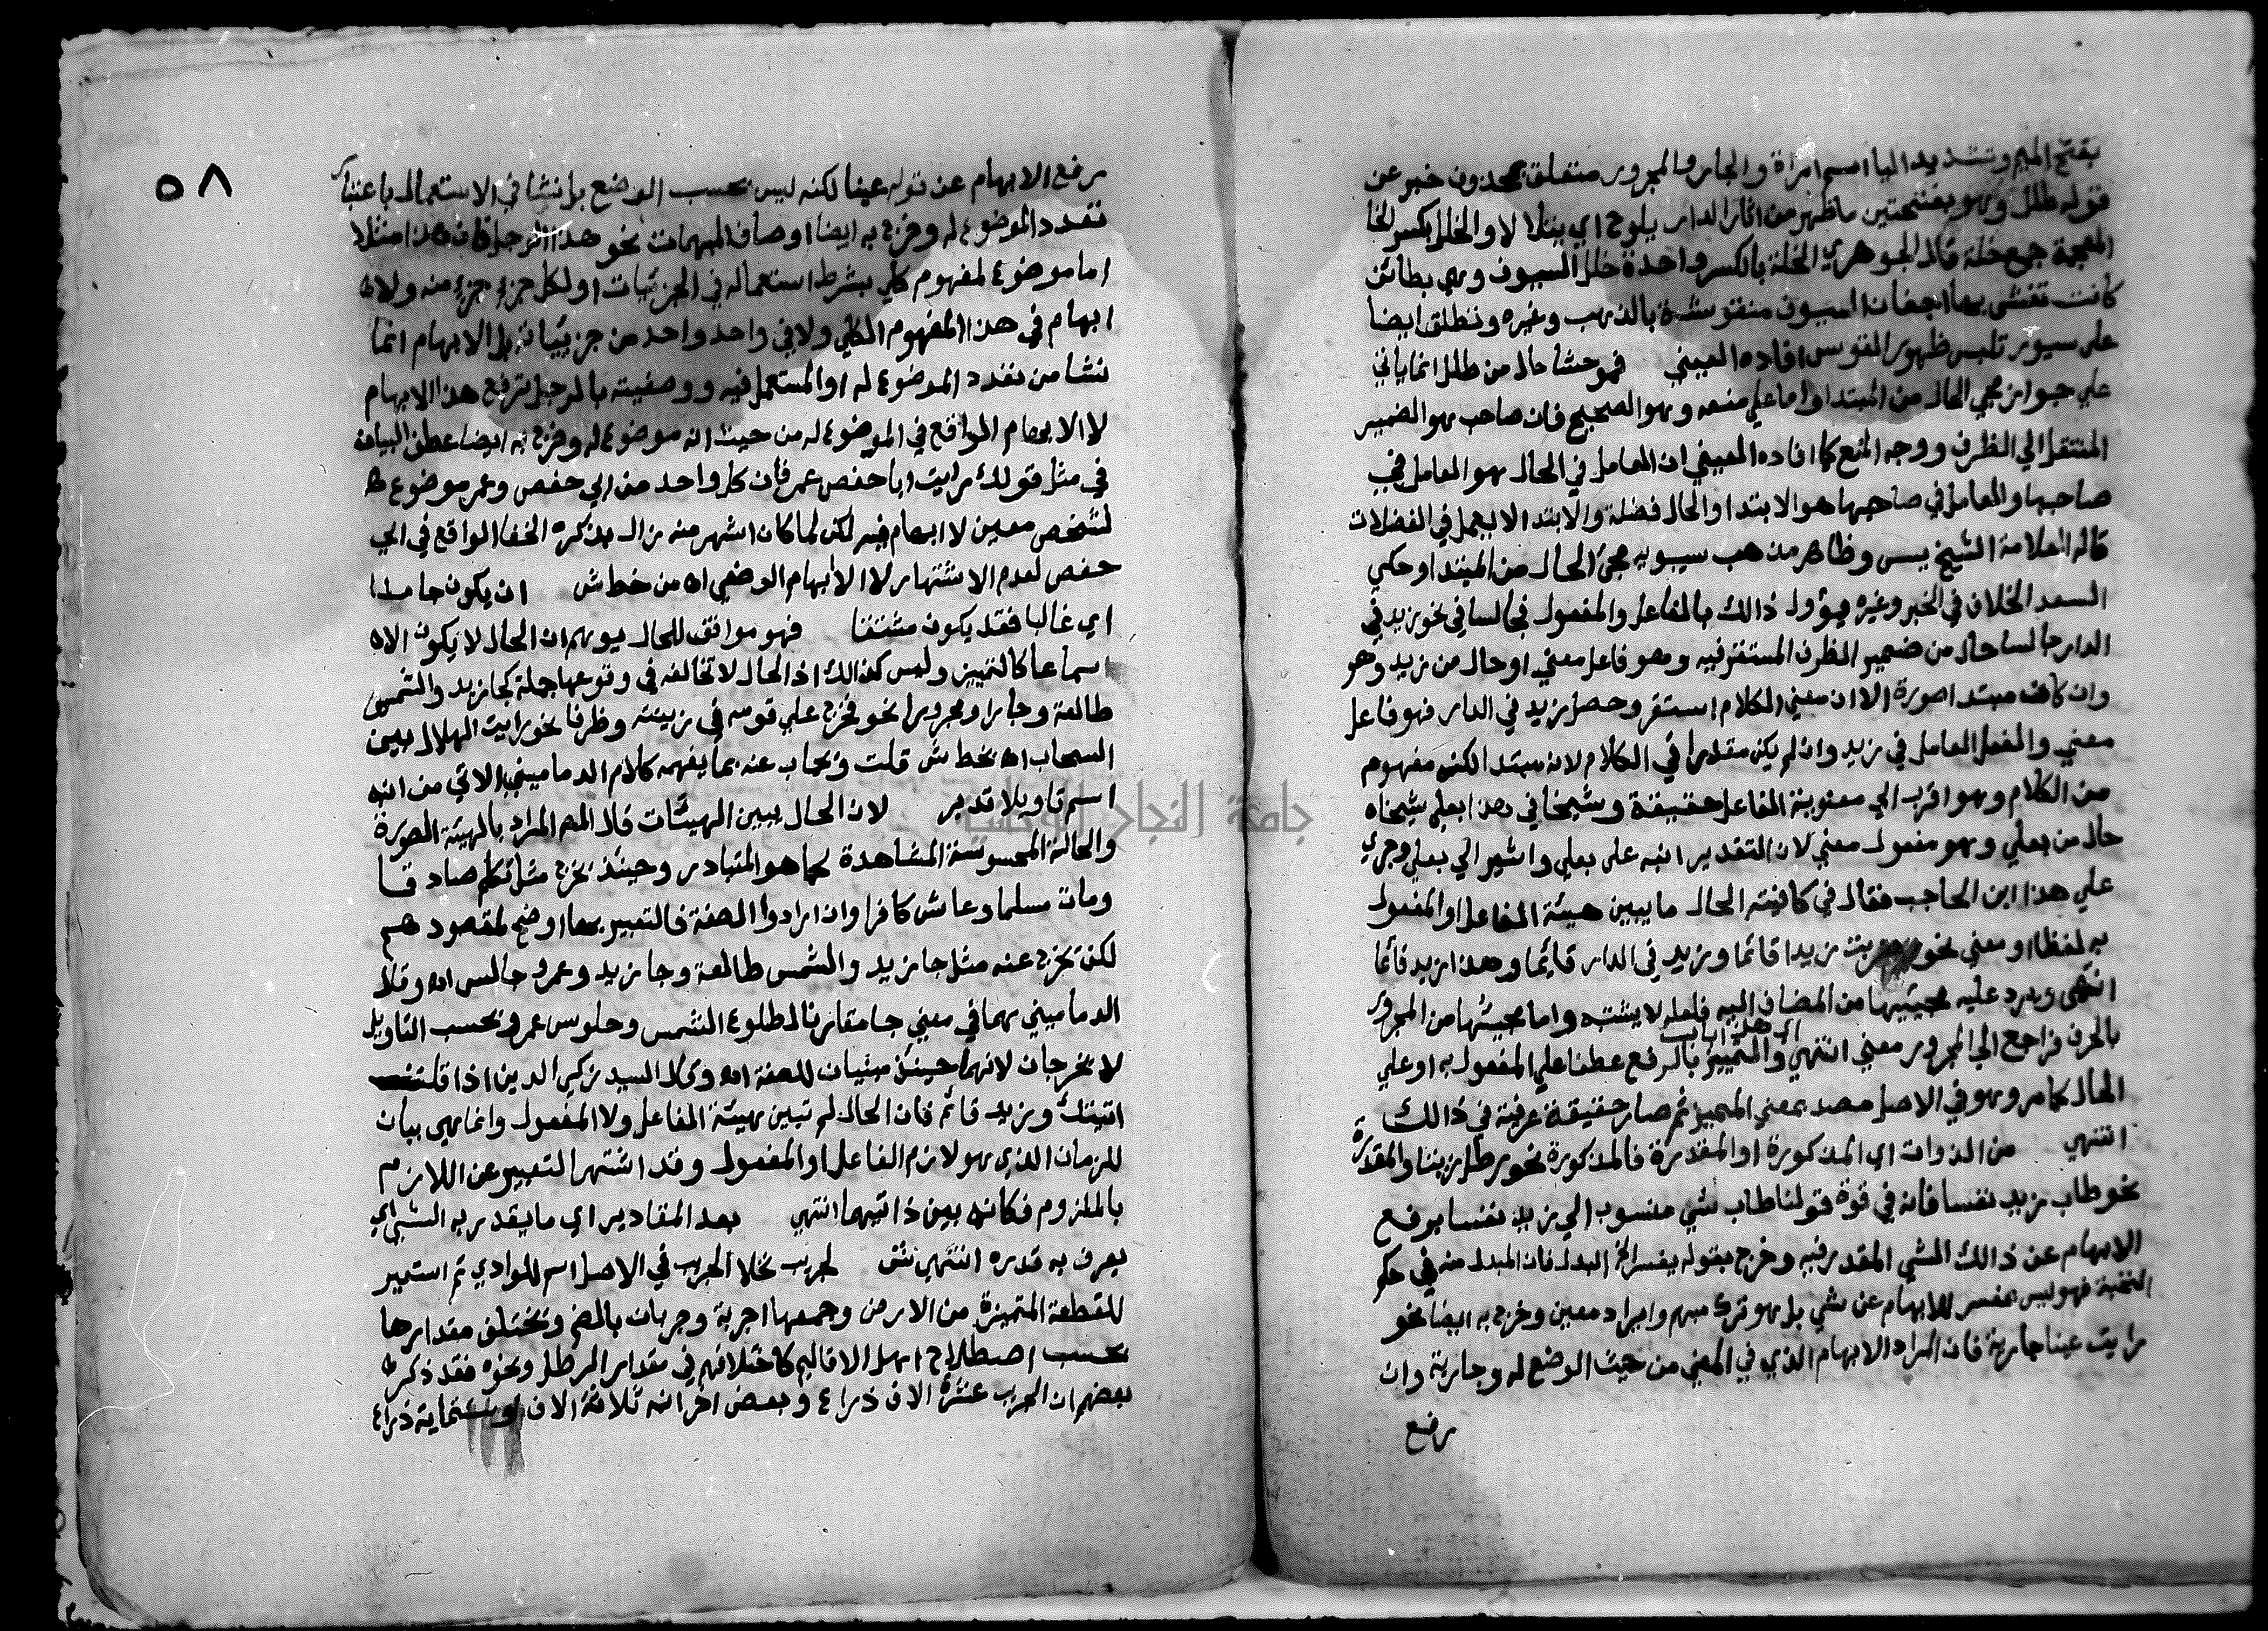 بفتح الميم وتشديد اليا اسم امراة والجار والمجرور متعلق بمحذوف خبر عن
قوله طلل وهو بفتحتين ما ظهر من اثار الدار يلوح اي يتلا لا والخلل بكسر الخا
المعجمة جمع خلة قال الجوهري الخلة بالكسر واحدة خلل السيوف وهي بطائن
كانت تغشى بها اجفان السيوف منقوشة بالذهب وغيره وتطلق ايضا
على سيور تلبس ظهور القوس افاده العيني فموحشا حال من طلل انما ياتي
علي جواز مجي الحال من المبتدا واما علي منعه وهو الصحيح فان صاحب هو الضمير
المنتقل الي الظرف ووجه المنع كما افاده العيني ان العامل في الحال هو العامل في
صاحبها والعامل في صاحبها هو الابتدا والحال فضلة والابتدا لا يعمل في الفضلات
قاله العلامة الشيخ يس وظاهر مذهب سيبويه مجئ الحال من المبتدا وحكي
السعد الخلاف في الخبر وغيره يؤول ذالك بالفاعل والمفعول فجالسا في نحو زيد في
الدار جالسا حال من ضمير الظرف المستقر فيه وهو فاعل معني او حال من زيد وهو
وان كان مبتدا صورة الا ان معني الكلام استقر وحصل زيد في الدار فهو فاعل
معني والفعل العامل في زيد وان لم يكن مقدرا في الكلام لانه مبتدا لكنه مفهوم
من الكلام وهو اقرب الي معنوية الفاعل حقيقة وشيخا في هذا بعلي شيخاه
حال من بعلي وهو مفعول معني لان التقدير انبه على بعلي واشير الي بعلي وجري
علي هذا ابن الحاجب فقال في كافيته الحال ما يبين هيئة الفاعل او المفعول
به لفظا او معني نحو ضربت زيدا قائما وزيد في الدار قايما وهذا زيد قائما
انتهى ويرد عليه مجيئها من المضاف اليه فلعله لا يثبته واما مجيئها من المجرور
بالحرف فراجع الي المجرور معني انتهي والتمييز بالرفع عطفا علي المفعول به او علي
اي هذا باب
الحال كما مر وهو في الاصل مصدر بمعني المميز ثم صار حقيقة عرفية في ذالك
انتهي من الذوات اي المذكورة او المقدرة فالمذكورة نحو رطل زيتا والمقدرة
نحو طاب زيد نفسا فانه في قوة قولنا طاب شي منسوب الي زيد نفسا يرفع
الابهام عن ذالك الشي المقدر فيه وخرج بقوله يفسر الخ البدل فان المبدل منه في حكم
التنحية فهو ليس بمفسر للابهام عن شي بل هو ترك مبهم وايراد معين وخرج به ايضا نحو
رايت عينا جارية فان المراد الابهام الذي في المعني من حيث الوضع له وجارية وان
رفع
٥٨
رفع الابهام عن قوله عينا لكنه ليس بحسب الوضع بل نشا في الاستعمال باعتبار
تعدد الموضوع له وخرج به ايضا اوصاف المبهمات نحو هذا الرجل فان هذا مثلا
اما موضوع لمفهوم كلي بشرط استعماله في الجزئيات او لكل جزء جزء منه ولا
ابهام في هذا المفهوم الكلي ولا في واحد واحد من جزئياته بل الابهام انما
نشا من تعدد الموضوع له او المستعمل فيه ووصفيته بالرجل ترفع هذا الابهام
لا الابهام الواقع في الموضوع له من حيث انه موضوع له وخرج به ايضا عطف البيان
في مثل قولك رايت ابا حفص عمر فان كل واحد من ابي حفص وعمر موضوع
لشخص معين لا ابهام فيه لكن لما كان اشهر منه زال بذكره الخفا الواقع في ابي
حفص لعدم الاشتهار لا الابهام الوضعي اه من خط ش ان يكون جامدا
اي غالبا فقد يكون مشتقا فهو موافق للحال يوهم ان الحال لا يكون الا
اسما عا كالتمييز وليس كذالك اذ الحال لا تخالفه في وقوعها جملة كجا زيد والشمس
طالعة وجارا ومجرورا نحو فخرج علي قومه في زينته وظرفا نحو رايت الهلال بين
السحاب اه بخط ش قلت ويجاب عنه بما يفهمه كلام الدماميني الاتي من انه
اسم تاويلا تدبر لان الحال يبين الهيئات قال المص المراد بالهيئة الصورة
والحالة المحسوسة المشاهدة كما هو المتبادر وحينئذ يخرج مثل تكلم صادقا
ومات مسلما وعاش كافرا وان ارادوا الصفة فالتعبير بها اوضح لمقصودهم
لكن يخرج عنه مثل جا زيد والشمس طالعة وجا زيد وعمرو جالس اه وقال
الدماميني هما في معني جا مقارنا لطلوع الشمس وجلوس عمرو بحسب التاويل
لا يخرجان لانهما حينئذ مبنيان للصفة اه وقال السيد زكي الدين اذا قلت
اتيتك وزيد قائم فان الحال لم تبين هيئة الفاعل ولا المفعول وانما هي بيان
للزمان الذي هو لازم الفاعل او المفعول وقد اشتهر التعبير عن اللازم
بالملزوم فكانه بين ذاتيهما انتهي بعد المقادير اي ما يقدر به الشي اي
يعرف به قدره انتهي ش لجريب نخلا الجريب في الاصل اسم للوادي ثم استعير
للقطعة المتميزة من الارض وجمعها اجربة وجربان بالضم وتختلف مقدارها
بحسب اصطلاح اهل الاقاليم كاختلافهم في مقدار الرطل ونحوه فقد ذكر
بعضهم ان الجريب عشرة الاف ذراع وبعض اخر انه ثلاثة الاف وستماية ذراع
جامعة النجاح الوطنية